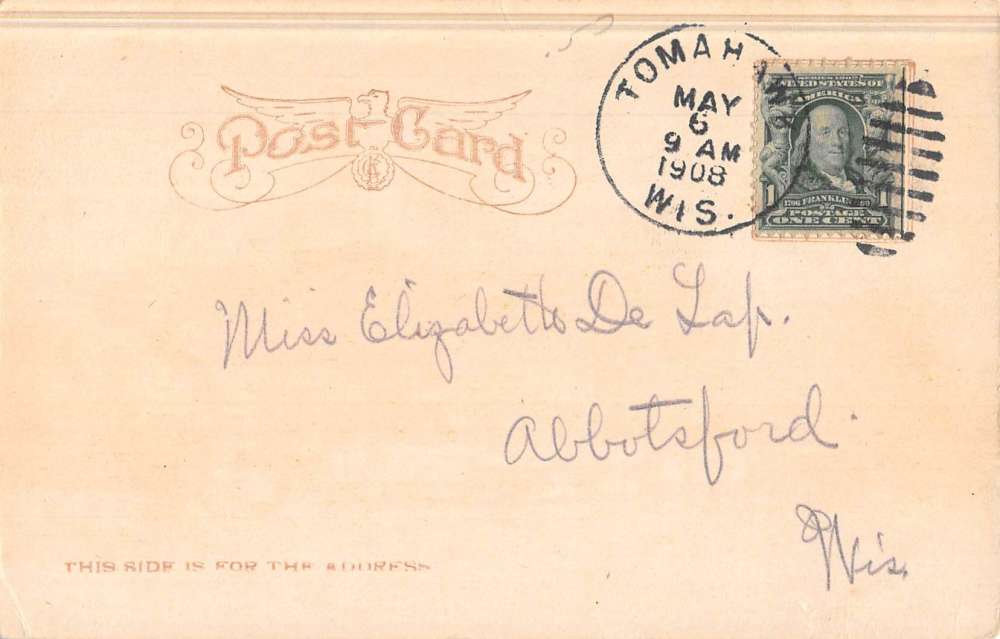 Post Card
TOMAHAWK
MAY
6
9 AM
1908
WIS.
UNITED STATES OF
AMERICA
1
1706 FRANKLIN 1790
POSTAGE
ONE CENT
Miss Elizabeth De Lap.
Abbotsford.
Wis.
THIS SIDE IS FOR THE ADDRESS